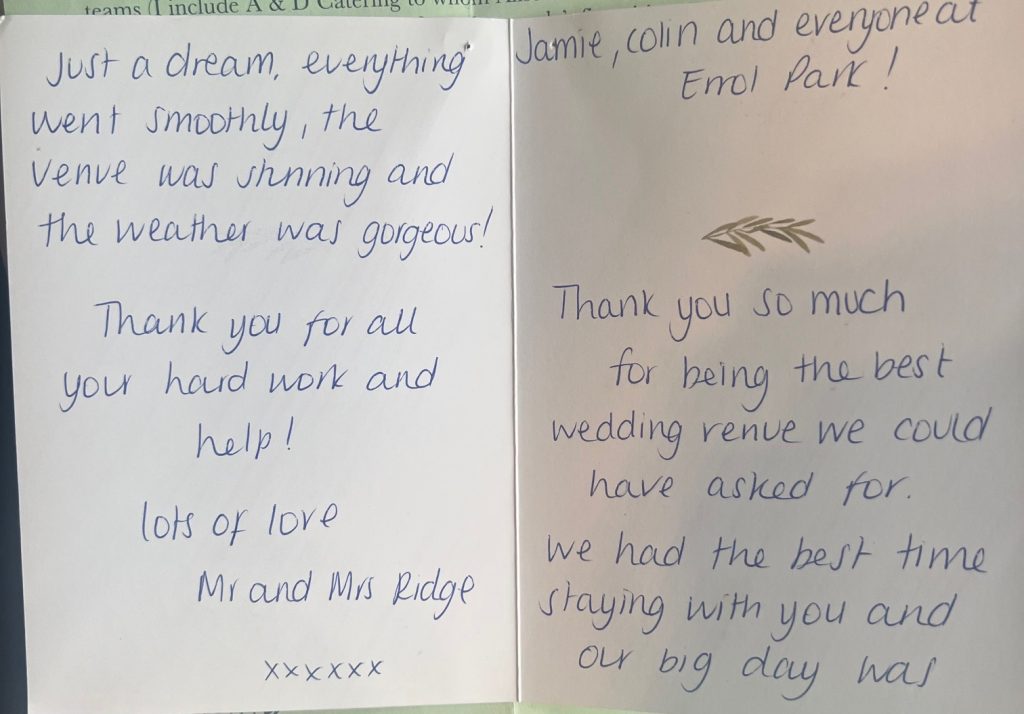 teams (I include A & D Catering to whom
Jamie, colin and everyone at
Errol Park!
Thank you so much
for being the best
wedding venue we could
have asked for.
We had the best time
staying with you and
our big day was
Just a dream, everything
went smoothly, the
venue was stunning and
the weather was gorgeous!
Thank you for all
your hard work and
help!
lots of love
Mr and Mrs Ridge
xxxxxx